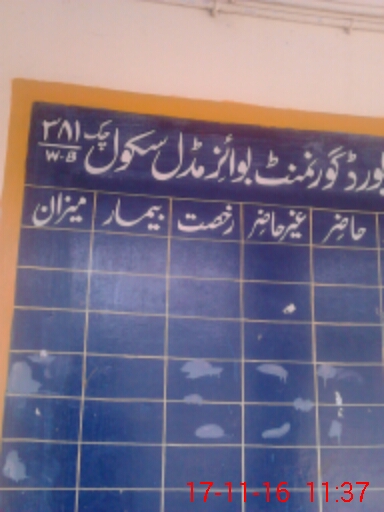 بورڈ گورنمنٹ بوائز مڈل سکول چک ۳۸۱
W-B
حاضر غیر حاضر رخصت بیمار میزان
17-11-16 11:37